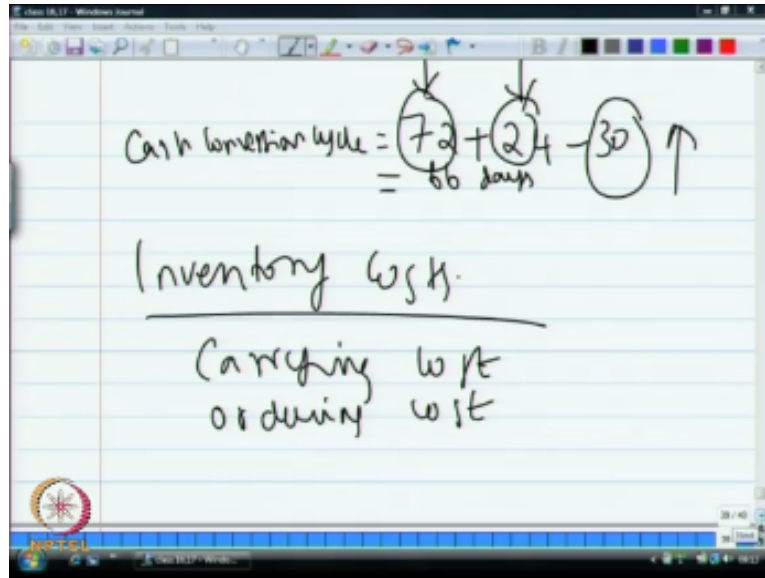 class 16,17 - Windows Journal
File Edit View Insert Actions Tools Help
Cash Conversion cycle = 72 + 24 - 30 ↑
= 66 days
Inventory costs.
Carrying cost
ordering cost
NPTEL
38 / 40
class 16,17 - Windo...